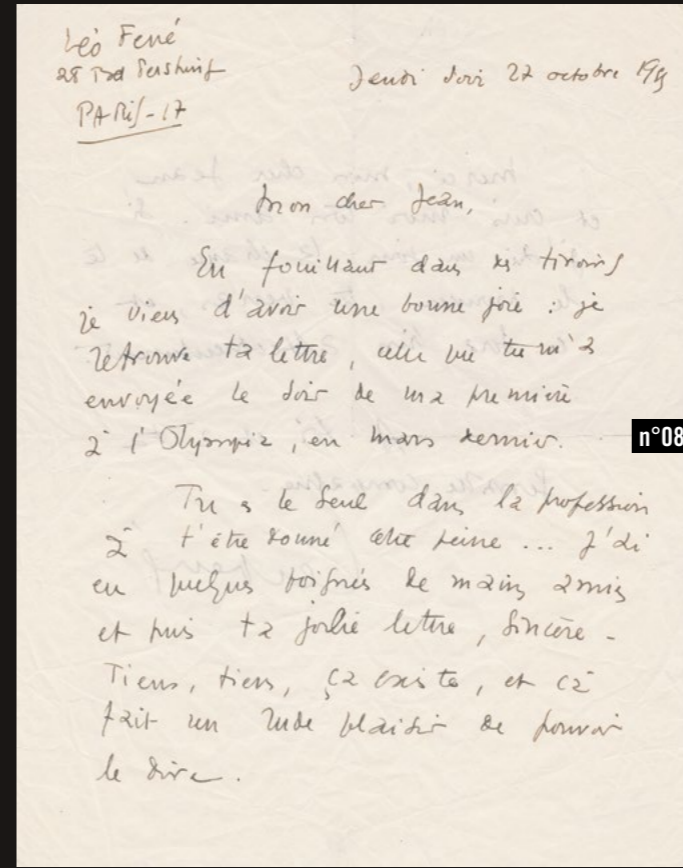 Léo Ferré
28 Bd Pershing
PARIS-17
Jeudi soir 27 octobre 1955
Mon cher Jean,
En fouillant dans mes tiroirs
je viens d'avoir une bonne joie : je
retrouve ta lettre, celle que tu m'as
envoyée le soir de ma première
à l'Olympia, en mars dernier.
n°08
Tu es le seul dans la profession
à t'être donné cette peine ... J'ai
eu quelques poignées de mains amies
et puis ta jolie lettre, sincère -
Tiens, tiens, ça existe, et ça
fait un rude plaisir de pouvoir
le dire.